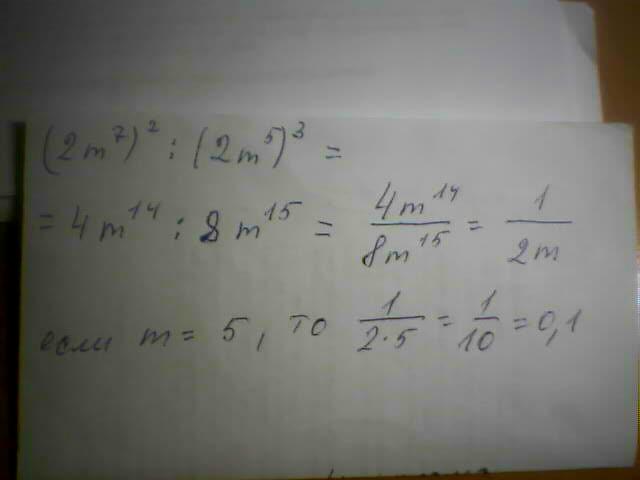 (2m⁷)² : (2m⁵)³ =
= 4m¹⁴ : 8m¹⁵ = 4m¹⁴/8m¹⁵ = 1/2m
если m = 5, то 1/2·5 = 1/10 = 0,1